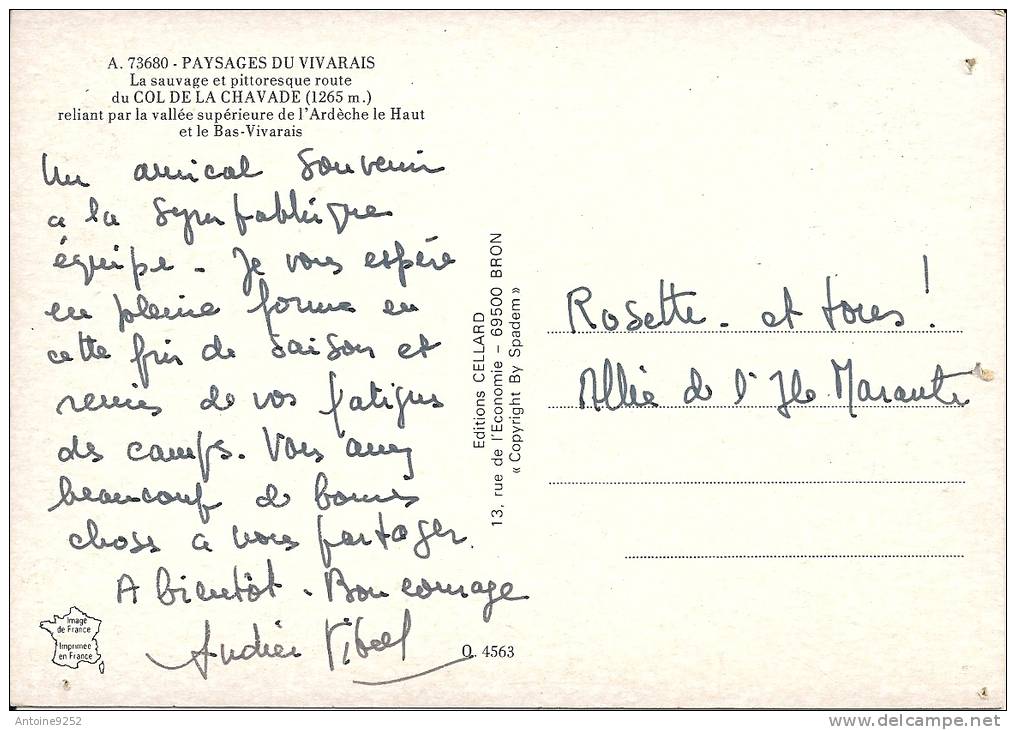 A. 73680 - PAYSAGES DU VIVARAIS
La sauvage et pittoresque route
du COL DE LA CHAVADE (1265 m.)
reliant par la vallée supérieure de l'Ardèche le Haut
et le Bas-Vivarais
Un amical souvenir
a la sympathique
équipe - Je vous espère
en pleine forme en
cette fin de saison et
remis de vos fatigues
des camps. Vous avez
beaucoup de bonnes
choses a vous partager.
A bientôt - Bon courage
Editions CELLARD
13, rue de l'Economie – 69500 BRON
« Copyright By Spadem »
Rosette - et tous !
Allée de l'Ile Marante
Image
de France
Imprimée
en France
O. 4563
Antoine9252
delcampe.net